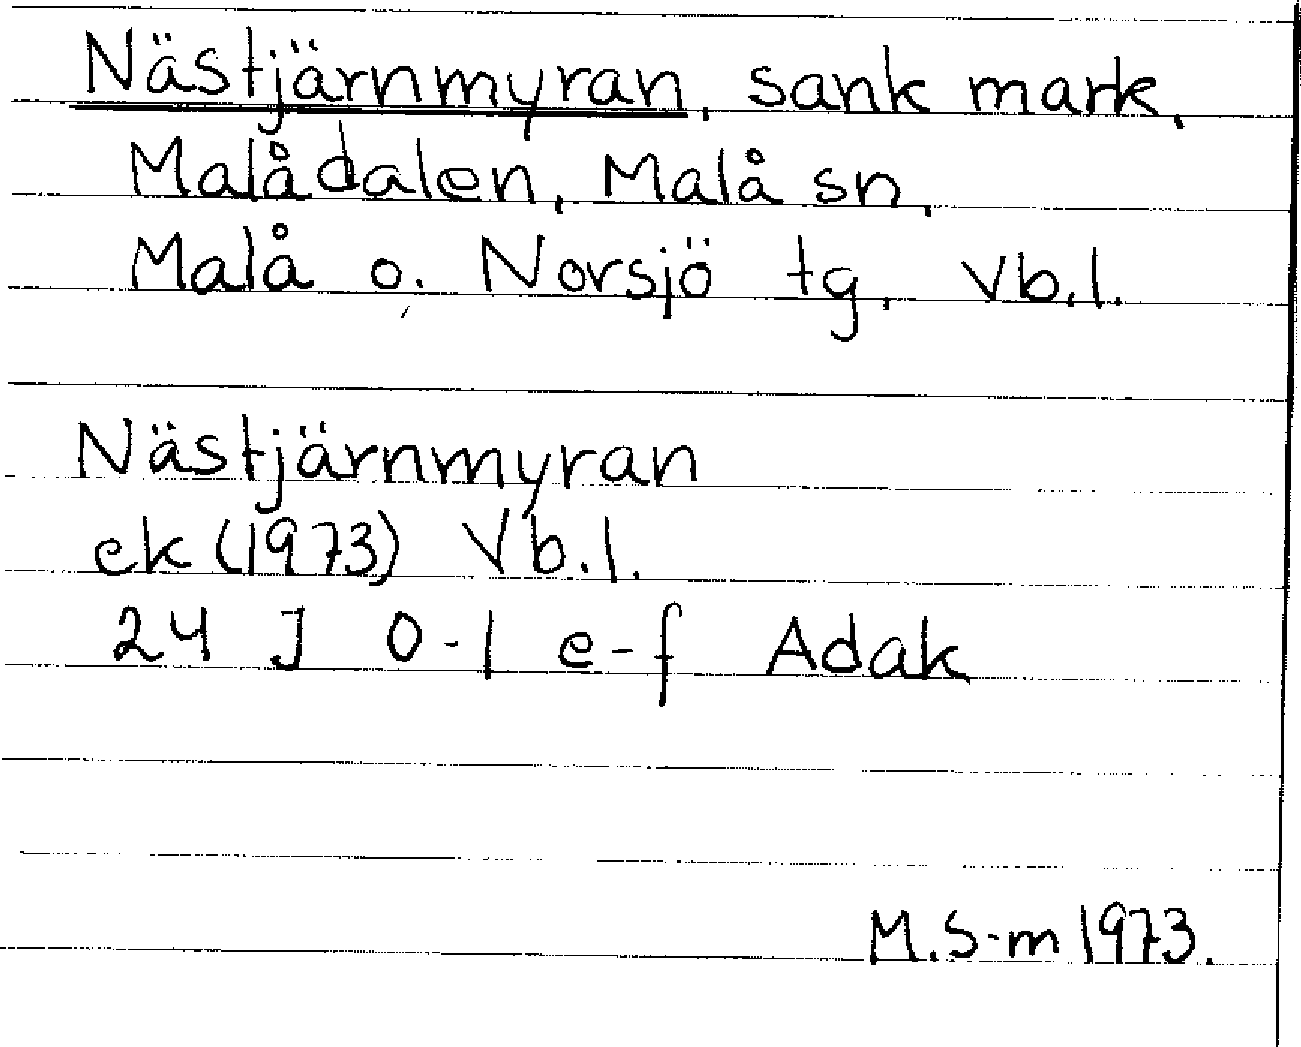 Nästjärnmyran, sank mark,
Malådalen, Malå sn,
Malå o. Norsjö tg, Vb.l.
Nästjärnmyran
ek (1973) Vb.l.
24 J 0-1 e-f Adak
M.S-m 1973.